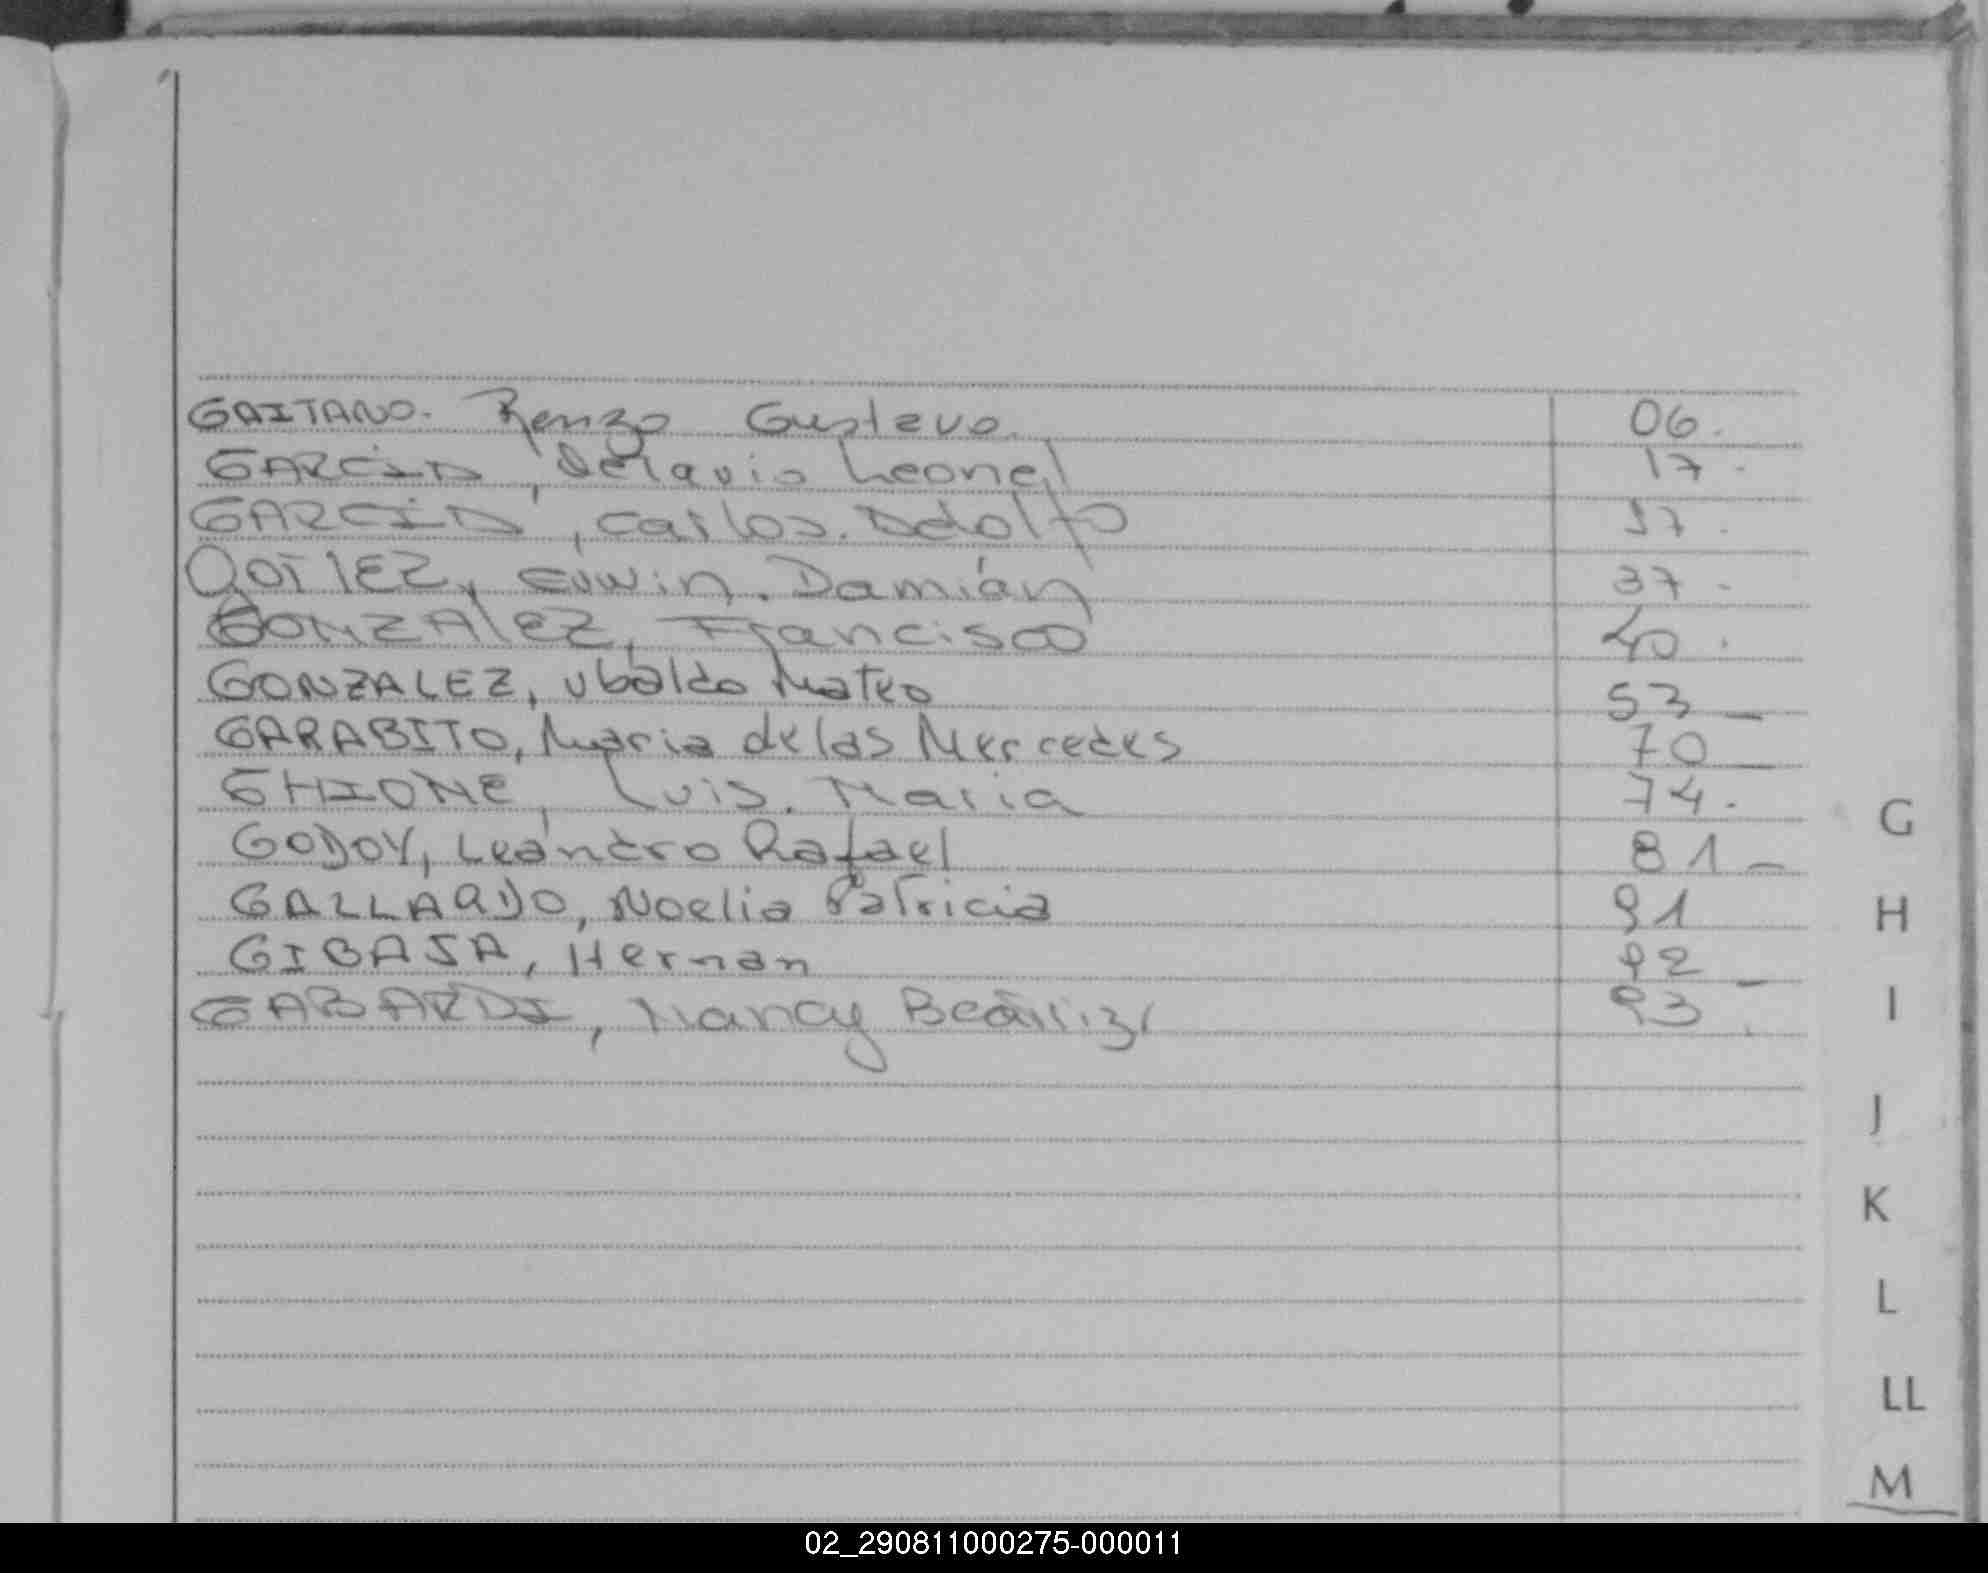 GAITANO. Renzo Gustavo. 06.
GARCIA, Octavio Leonel 17.
GARCIA, Carlos. Adolfo 37.
Edwin. Damián 37.
GONZALEZ, Francisco 40.
GONZALEZ, Ubaldo Mateo 53_
GARABITO, Maria de las Mercedes 70_
GHIONE, Luis. Maria 74.
G
GODOY, Leandro Rafael 81_
GALLARDO, Noelia Patricia 91
H
GIBAJA, Hernan 92_
GABARDI, Nancy Beatriz 93.
I
J
K
L
LL
M
02_290811000275-000011